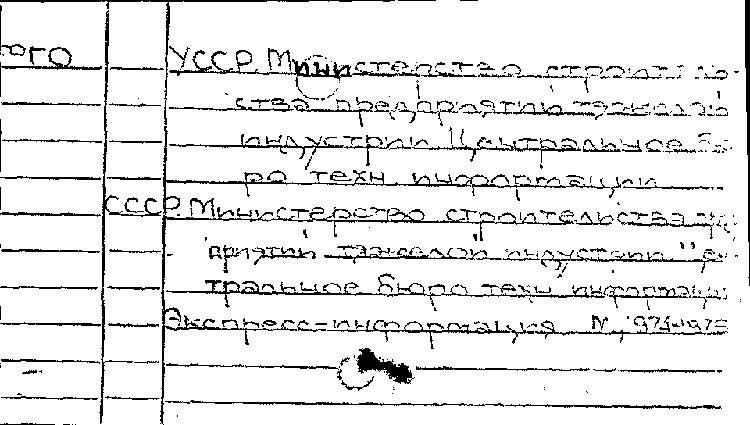 ого УССР. Министерство строительс
ства предприятий тяжелой
индустрии Центральное бю
ро техн информации
СССР. Министерство строительства
приятий тяжелой индустрии
тральное бюро техн информации
Экспресс-информация М, 1974-1975